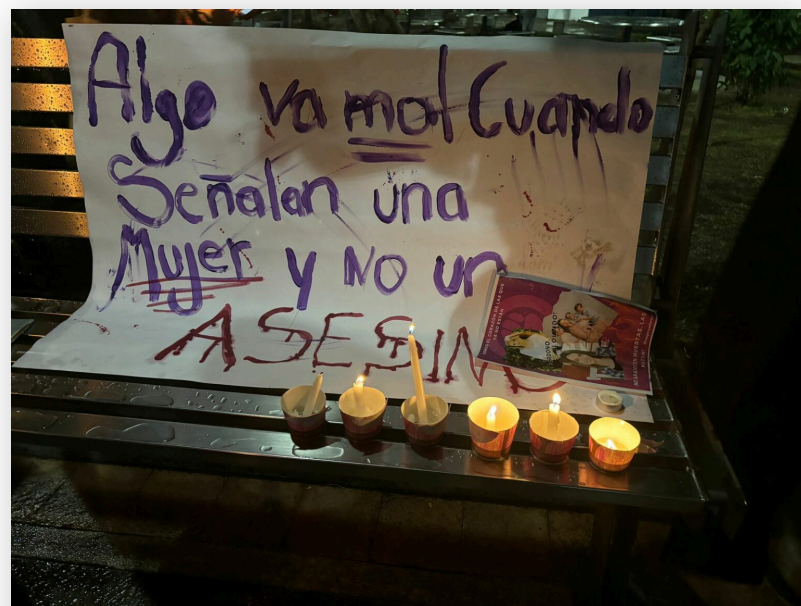 Algo va mal Cuando
Señalan una
Mujer y No un
ASESINO